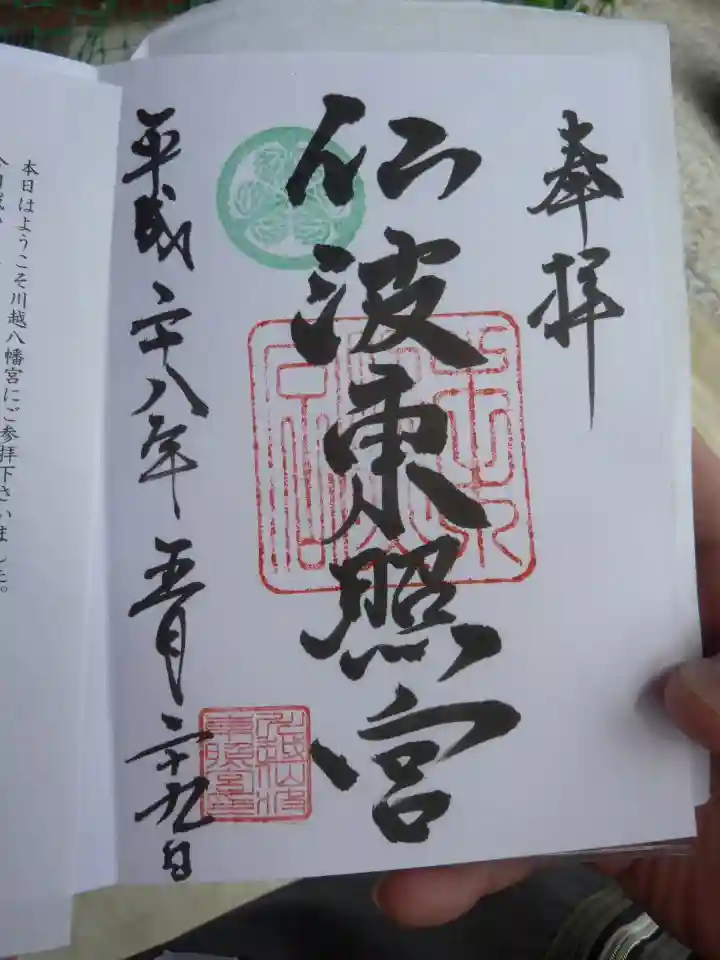 奉拝
仙波東照宮
平成二十八年五月二十九日
川越仙波
東照宮印
本日はようこそ川越八幡宮にご参拝下さいました。